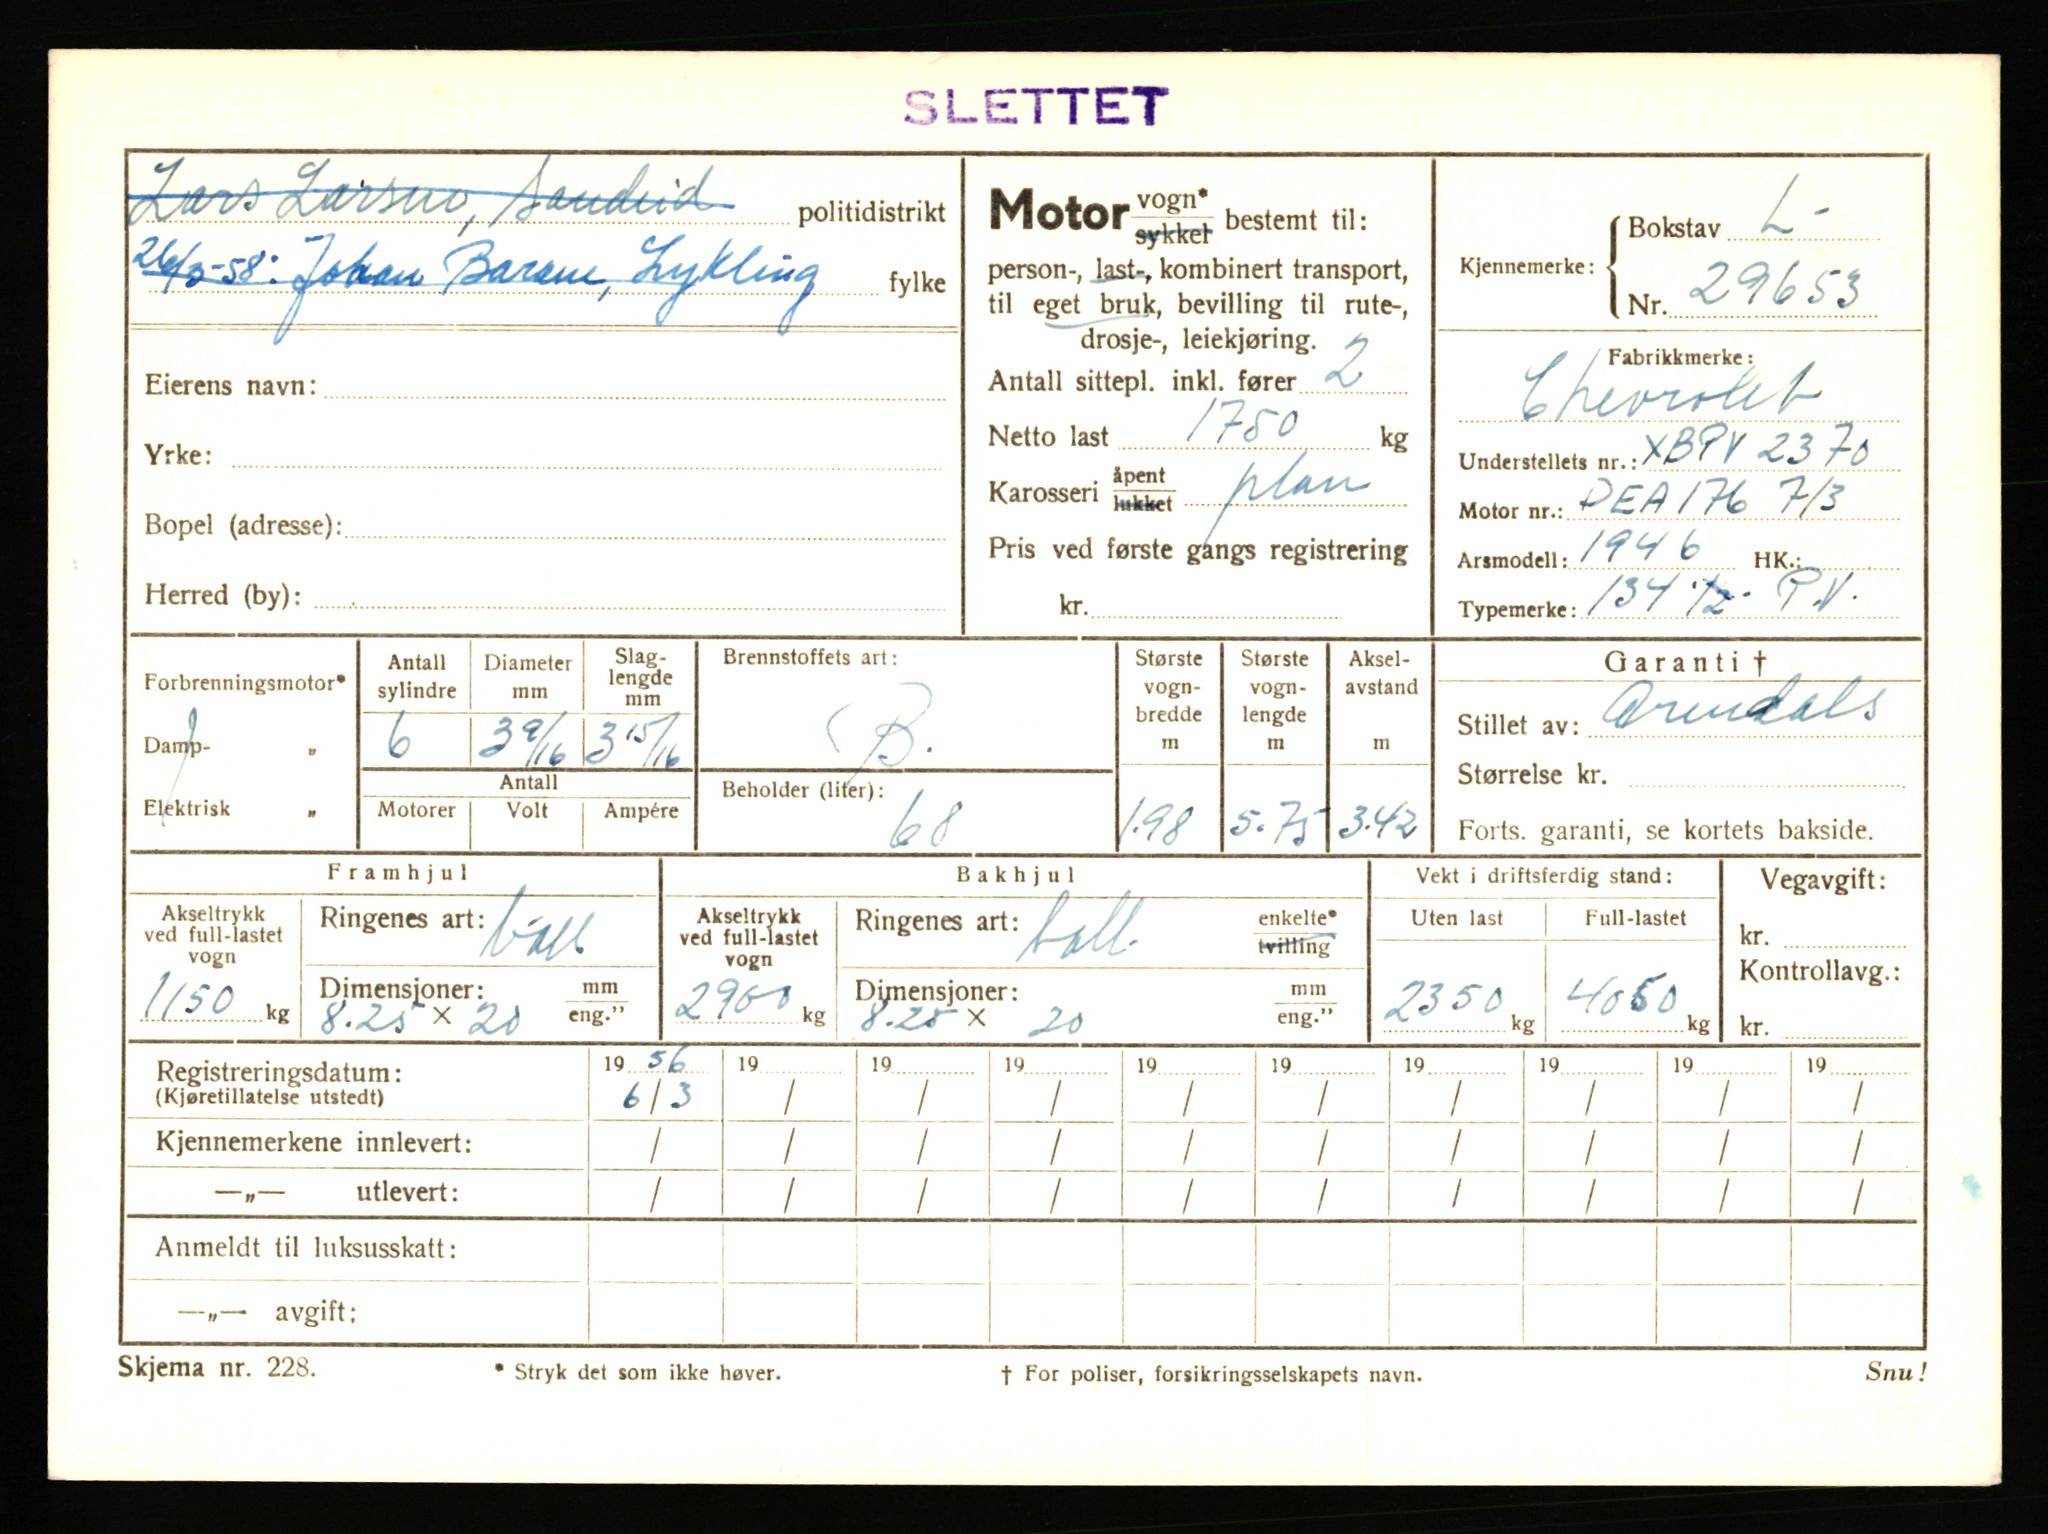 SLETTET
Lars Larsen, Sandeid politidistrikt
26/3-58: Johan Barane, Lykling fylke
Eierens navn:
Yrke:
Bopel (adresse):
Herred (by):
Motor vogn* sykkel bestemt til:
person-, last-, kombinert transport,
til eget bruk, bevilling til rute-,
drosje-, leiekjøring.
Antall sittepl. inkl. fører 2
Netto last 1750 kg
Karosseri åpent lukket plan
Pris ved første gangs registrering
kr.
Kjennemerke: Bokstav L-
Nr. 29653
Fabrikkmerke:
Chevrolet
Understellets nr.: XBPV 2370
Motor nr.: DEA 176 713
Arsmodell: 1946 HK.:
Typemerke: 134 1/2" P.V.
Forbrenningsmotor*
Damp- „
Elektrisk „
Antall sylindre
6
Diameter mm
3 9/16
Slag-lengde mm
3 15/16
Antall
Motorer Volt Ampére
Brennstoffets art:
B.
Beholder (liter):
68
Største vogn-bredde m
1.98
Største vogn-lengde m
5.75
Aksel-avstand m
3.42
Garanti †
Stillet av: Arendals
Størrelse kr.
Forts. garanti, se kortets bakside.
Framhjul
Akseltrykk ved full-lastet vogn
1150 kg
Ringenes art: ball
Dimensjoner: mm eng."
8.25 × 20
Bakhjul
Akseltrykk ved full-lastet vogn
2900 kg
Ringenes art: ball. enkelte* tvilling
Dimensjoner: mm eng."
8.25 × 20
Vekt i driftsferdig stand:
Uten last Full-lastet
2350 kg 4050 kg
Vegavgift:
kr.
Kontrollavg.:
kr.
Registreringsdatum: 19 56 19 19 19 19 19 19 19 19 19
(Kjøretillatelse utstedt) 6/3 / / / / / / / / /
Kjennemerkene innlevert: / / / / / / / / / /
—„— utlevert: / / / / / / / / / /
Anmeldt til luksusskatt:
—„— avgift:
Skjema nr. 228. * Stryk det som ikke høver. † For poliser, forsikringsselskapets navn. Snu!